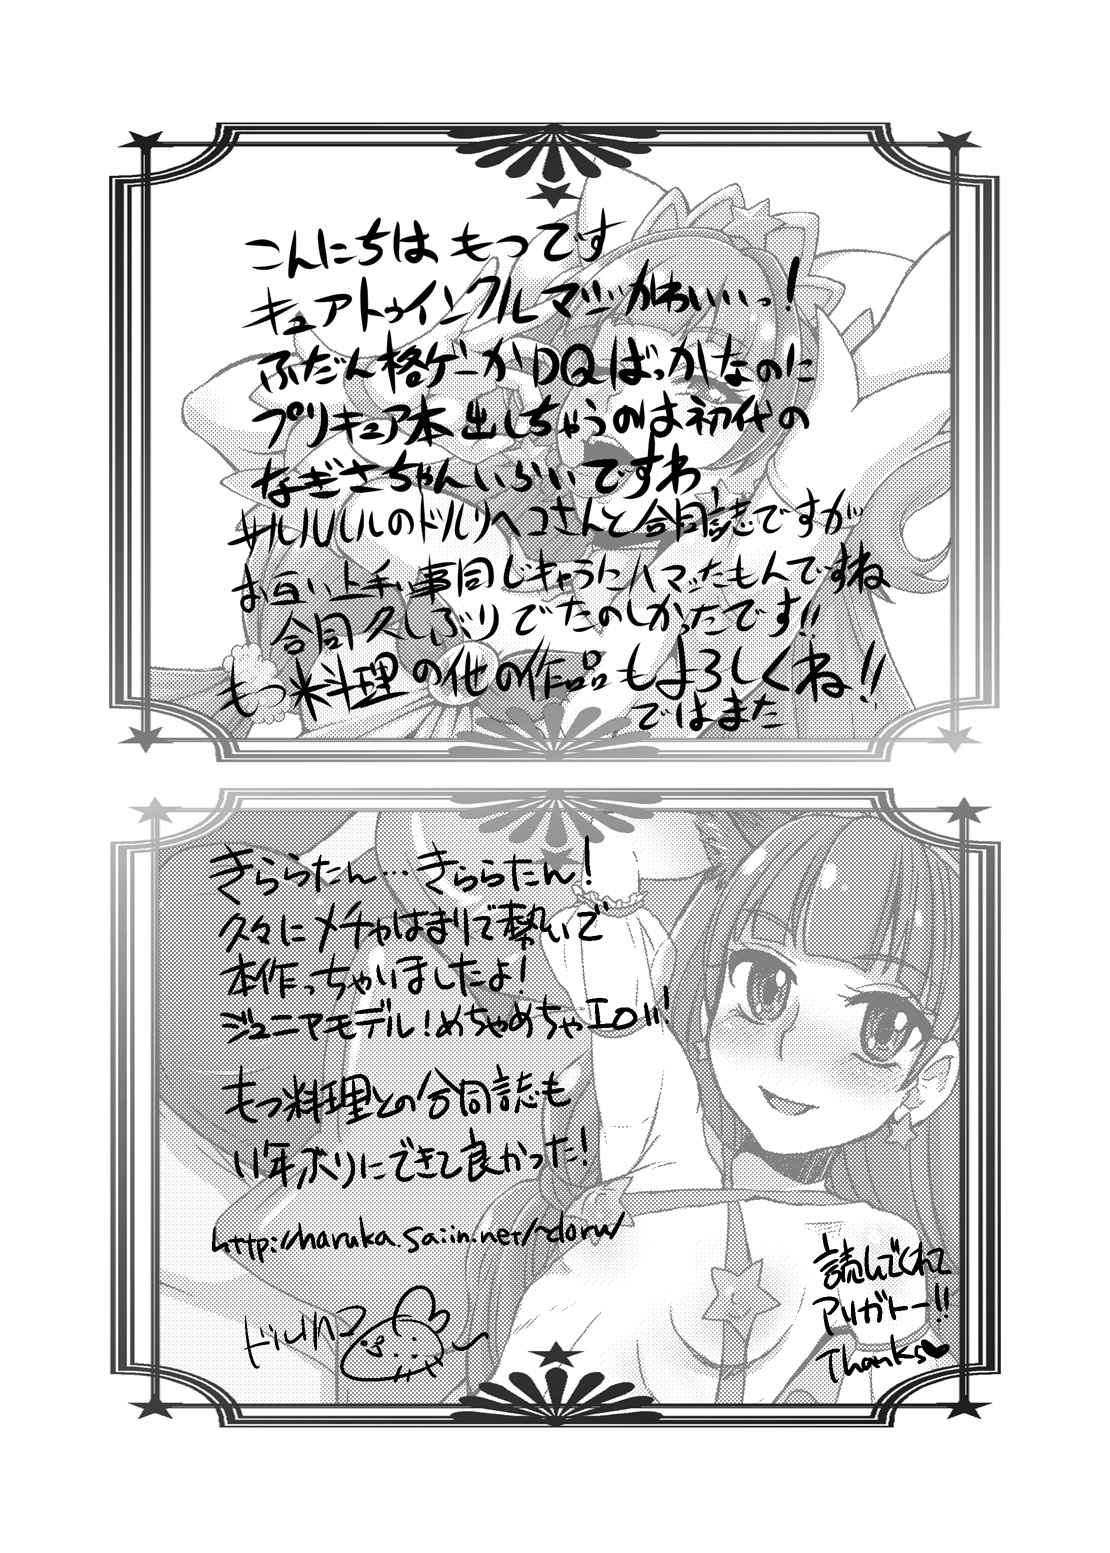 こんにちは もつです
キュアトゥインクルマジかわいいっ!
ふだん格ゲーかDQばっかなのに
プリキュア本出しちゃうのは初代の
なぎさちゃんいらいですわ
サルルルルのドルリヘコさんと合同誌ですが
お互い上手い事同じキャラにハマったもんですね
合同久しぶりでたのしかったです!!
もつ料理の他の作品もよろしくね!!
ではまた
きららたん…きららたん!
久々にメチャはまりで勢いで
本作っちゃいましたよ!
ジュニアモデル!めちゃめちゃエロい!
もつ料理との合同誌も
11年ぶりにできて良かった!
http://haruka.saiin.net/~doru/
読んでくれて
アリガトー!!
Thanks♥